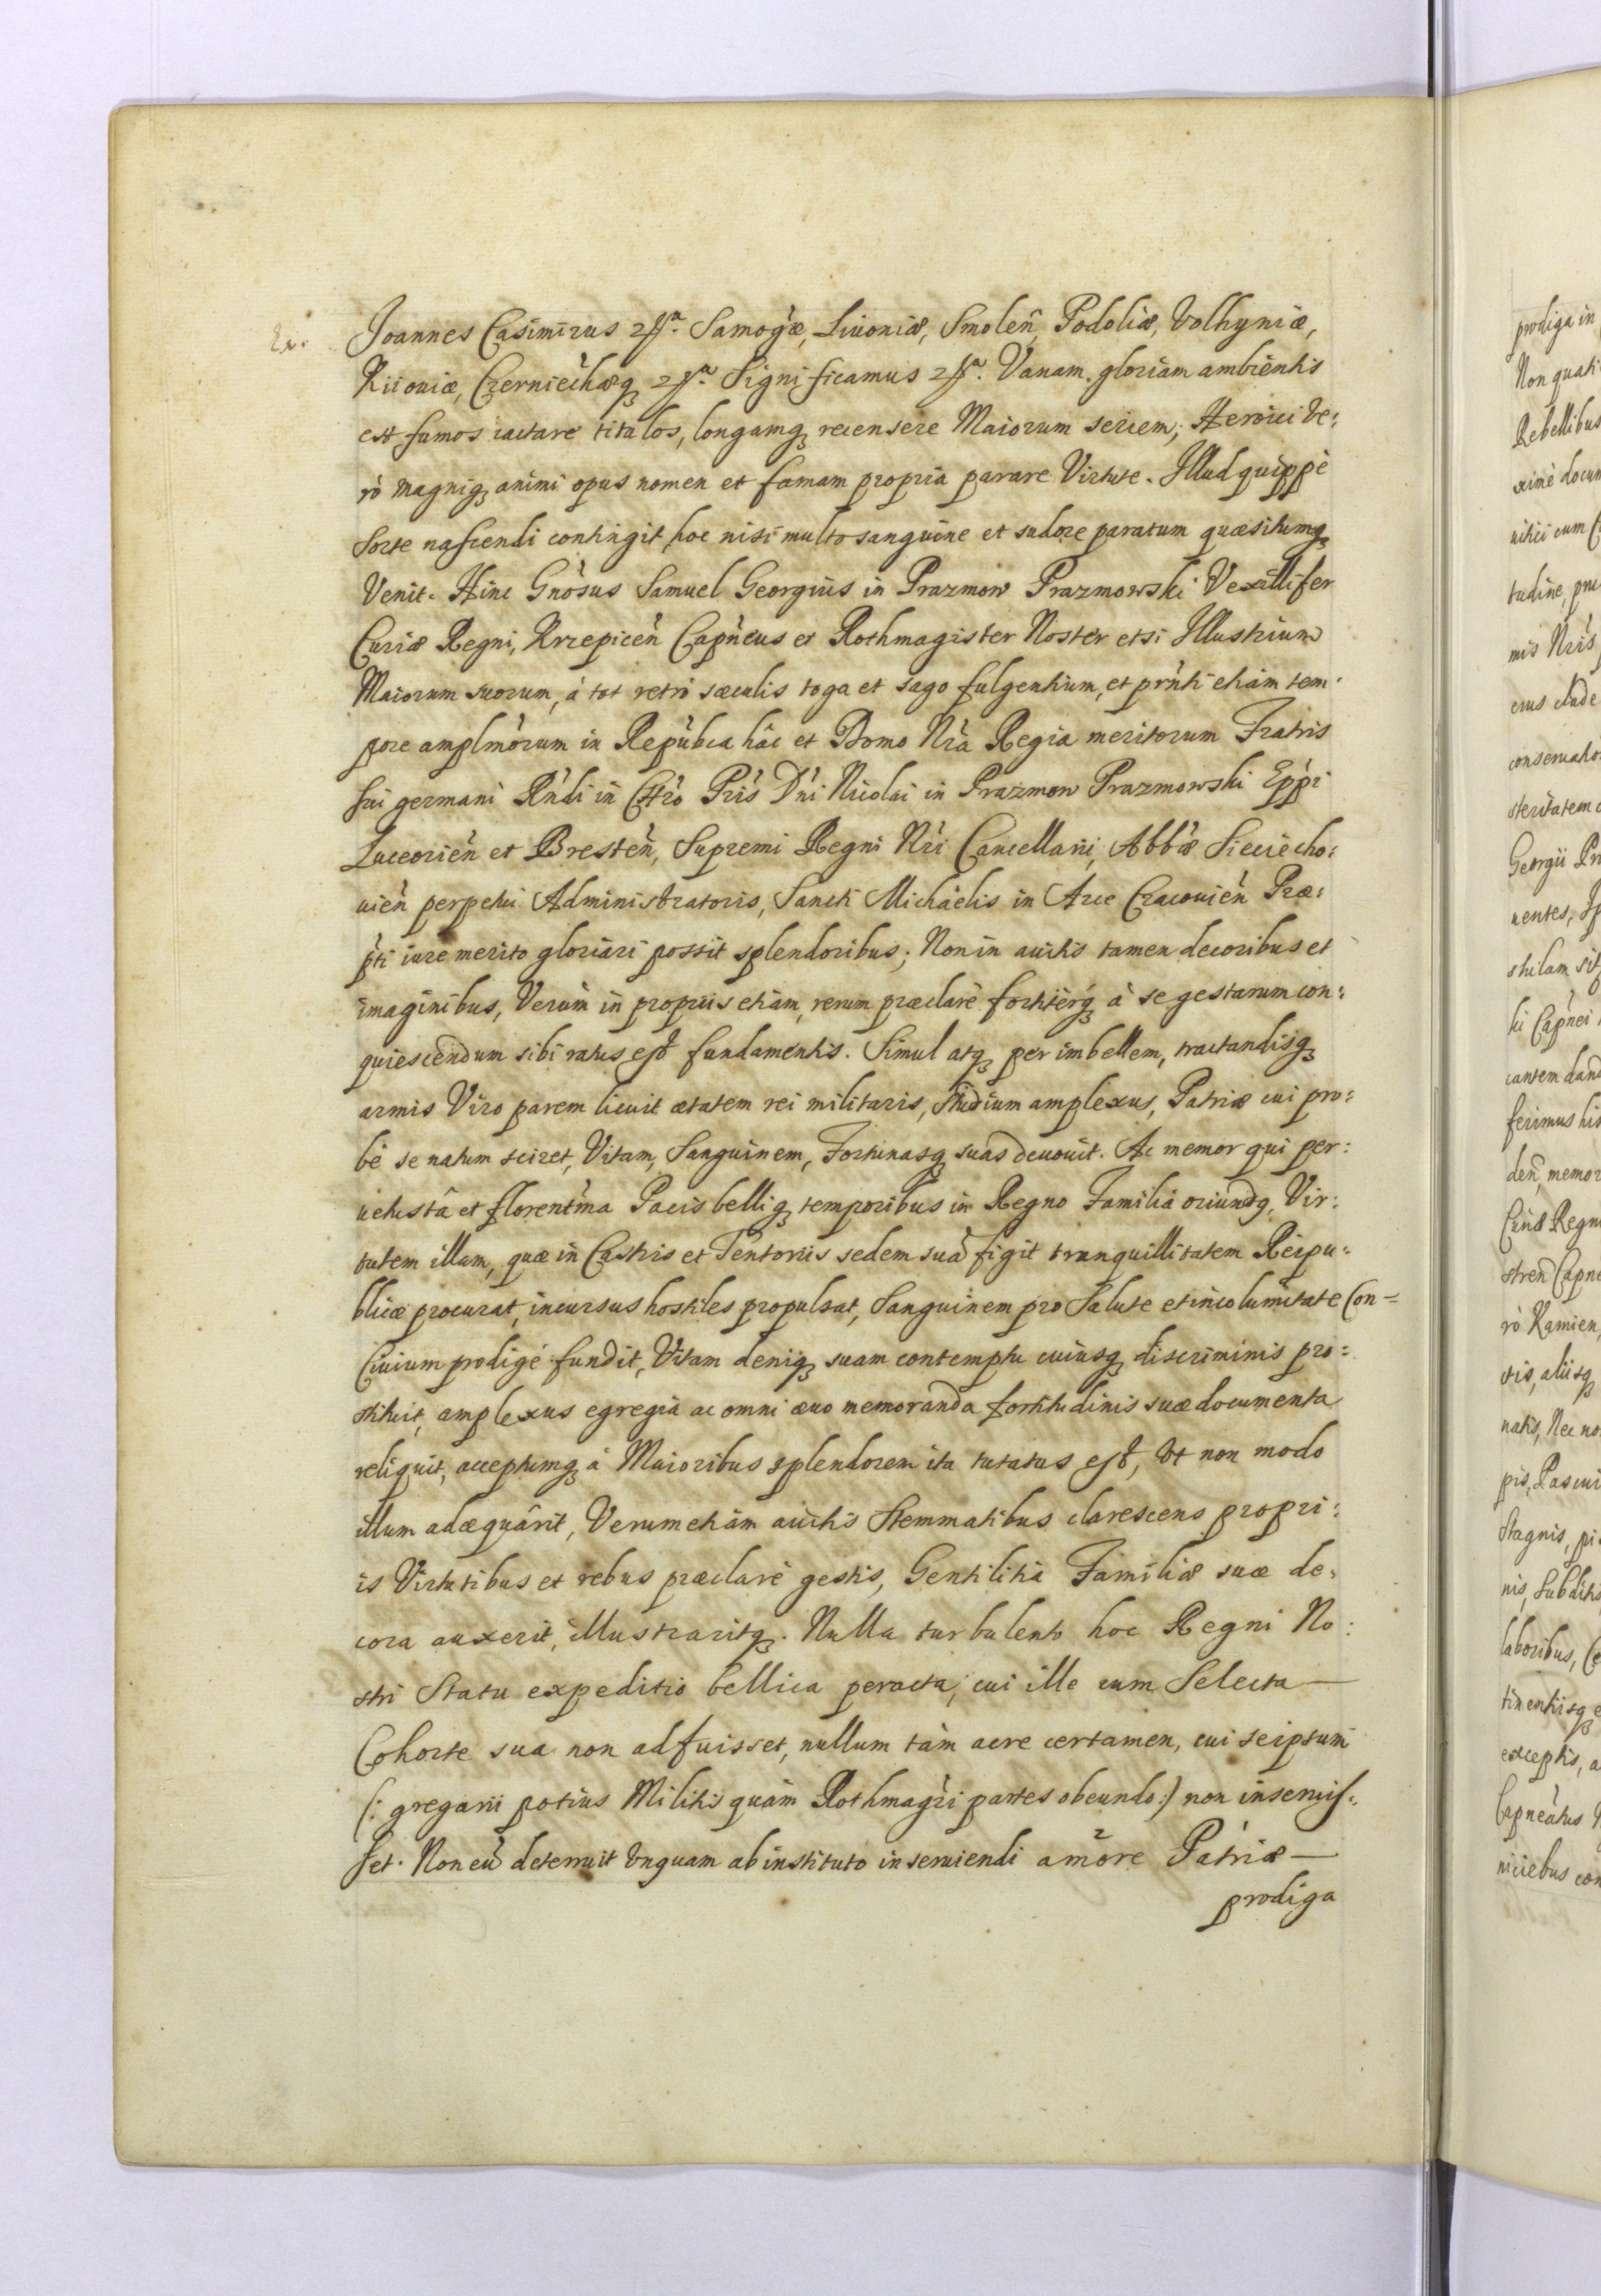 Ex.
Joannes Casimirus Samogæ, Liuoniæ, Smolen̄, Podoliæ, Volhyniæ,
Kiiouiæ, Czerniechæq̢ Significamus Vanam gloriam ambientis
est fumos iactare titulos, longamq̢ recensere Maiorum seriem; Heroici ve:
rò magniq̢ animi opus nomen et famam propria parare Virtute. Illud quippè
Sorte nascendi contingit, hoc nisi multo sanguine et sudore paratum quæsitumq̢
Venit. Hinc Gnòsus Samuel Georgius in Prazmow Prazmowski Vexillifer
Curiæ Regni, Krzepicen̄ Capn̄eus et Rothmagister Noster etsi Illustrium
Maiorum suorum, à tot retrò sæculis toga et sago fulgentium, et prn̄ti etiàm tem:
pore amplmòrum in Repùbca hâc et Domo Nrà Regia meritorum Fratris
sui germani Rn̄di in Chrò Prìs Dn̄i Nicolai in Prazmow Prazmowski Epp̀i
Luceorien̄ et Bresten̄, Supremi Regni Nrì Cancellarii, Abbæ̀ Sieciecho:
uien̄ perpetui Administratoris, Sancti Michäelis in Arce Cracouien̄ Præ:
p̀ti iure merito gloriari possit splendoribus; Non in auitis tamen decoribus et
imaginibus, Verùm in propriis etiàm, rerum præclarè fortitèrq̢ à se gestarum con:
quiescendum sibi ratus est fundamentis. Simul atq̢ per imbellem, tractandisq̢
armis Viro parem licuit ætatem rei militaris, studium amplexus, Patriæ cui pro:
bè se natum sciret, Vitam, Sanguinem, Fortunasq̢ suas deuouit. Ac memor qui per:
uetustâ et florentm̄a Pacis belliq̢ temporibus in Regno Familiâ oriundq̢, Vir:
tutem illam, quæ in Castris et Tentoriis sedem suā figit tranquillitatem Reipu:
blicæ procurat, incursus hostiles propulsat, Sanguinem pro Salute et incolumitate Con=
Ciuium prodigè fundit, Vitam deniq̢ suam contemptu cuiusq̢ discriminis pro:
stituit, amplexus egregia ac omni æuo memoranda fortitudinis suæ documenta
reliquit, acceptumq̢ à Maioribus splendorem ita tutatus est, Vt non modo
illum adæquârit, Verumetiàm auitis Stemmatibus clarescens propri:
is Virtutibus et rebus præclarè gestis, Gentilitia Familiæ suæ de:
cora auxerit, illustraritq̢. Nulla turbulento hoc Regni No:
stri Statu expeditio bellica peracta, cui ille cum Selecta —
Cohorte sua non adfuisset, nullum tàm acre certamen, cui seipsum
(: gregarii potius Militis quàm Rothmagrì partes obeundo:) non inseruis:
set. Non eū deterruit Vnquam ab instituto inseruiendi amore Patriæ —
prodiga
prodiga in
Rebellibus
ximè docum
mis Nrìs
Georgii Pr
nentes,
ki Capn̄ei
ferimus
den̄, memor
Regn
rò Kamien,
tis, aliisq̢
natis, Nec no
Stagnis, pi
nis, Subditis
laboribus,
tinentiisq̢
exceptis, a
Capneàtus